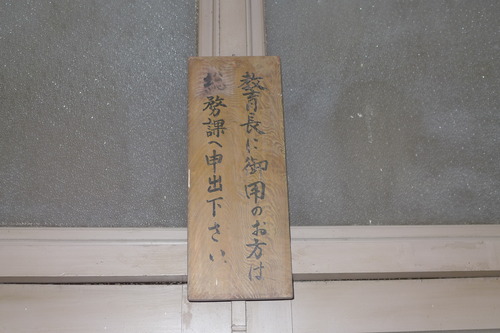 教育長に御用のお方は
総務課へ申出下さい、